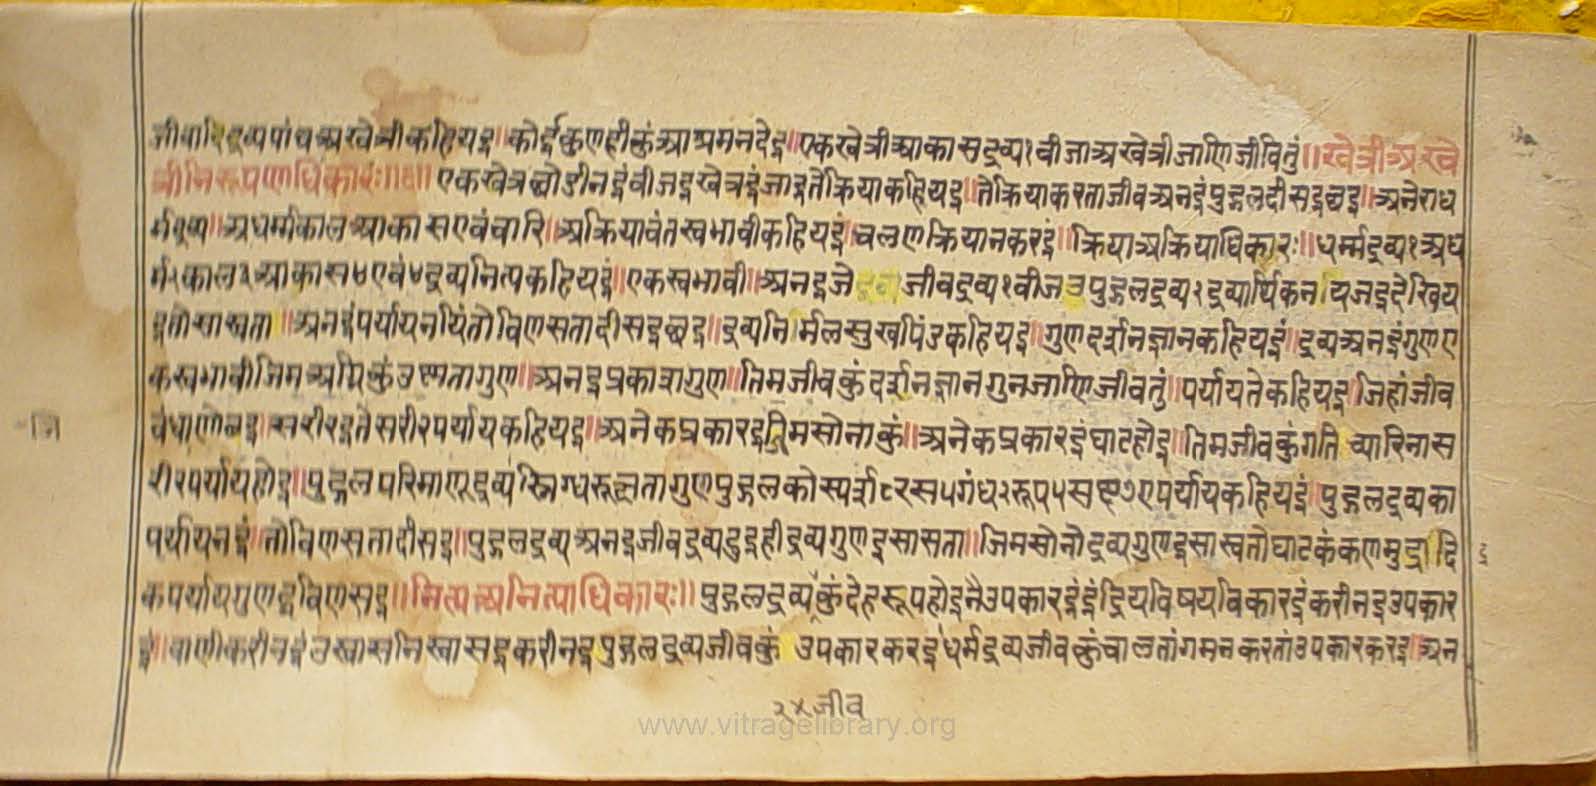 जीवादिद्रव्यपांचअखेत्रीकहियइ॥कोईकुणहीकुंआश्रमनदेइ॥एकखेत्रीआकासद्रव्य१बीजाअखेत्रीजाणिजीवितुं॥खेत्रीअखे
त्रीनिरूपणाधिकारः॥छ॥ एकखेत्रछोडीनइंबीजइखेत्रइंजाइतेक्रियाकहियइ॥तेक्रियाकरताजीवअनइंपुद्गलदीसइछइ॥अनेराध
र्मद्रव्य॥अधर्म्मकालआकासएवंचारि॥अक्रियावंतस्वभावीकहियइं॥चलणक्रियानकरइं॥क्रियाअक्रियाधिकारः॥धर्म्मद्रव्य१अध
र्म२काल३आकास४एवं४द्रव्यनित्यकहियइं॥एकस्वभावी॥अनइजे जीवद्रव्य१बीजउपुद्गलद्रव्य२द्रव्यार्थिकनयियजइदेखिय
इतोसास्वता॥अनइंपर्यायनयिंतोविणसतादीसइछइ॥द्रव्यनिर्मलसुखपिंडकहियइ॥गुणदर्शनज्ञानकहियइं॥द्रव्यअनइंगुणए
कस्वभावीजिमअग्निकुंउष्णतागुण॥अनइप्रकाशगुण॥तिमजीवकुंदर्शनज्ञानगुनजाणिजीवतुं॥पर्यायतेकहियइ॥जिहांजीव
बंधाणोछइ॥सरीरइतेसरीरपर्यायकहियइ॥अनेकप्रकारइजिमसोनाकुं॥अनेकप्रकारइंघाटहोइ॥तिमजीवकुंगतिच्यारिनास
रीरपर्यायहोइ॥पुद्गलपरिमाणूद्रव्यस्निग्धरूक्षतागुणपुद्गलकोस्पर्श८रस५गंध२रूप५सब्द७एपर्यायकहियइं॥पुद्गलद्रव्यका
पर्यायनइं॥तोविणसतादीसइ॥पुद्गलद्रव्यअनइजीवद्रव्यदुइहीद्रव्यगुणइसासता॥जिमसोनोद्रव्यगुणइसास्वतोघाटकंकणमुद्रादि
कपर्यायगुणइविणसइ॥नित्यअनित्याधिकारः॥पुद्गलद्रव्यकुंदेहरूपहोइनैउपकारइंइंद्रियविषयविकारइंकरीनइउपकार
इं॥वाणीकरीनइंउस्वासनिस्वासइकरीनइपुद्गलद्रव्यजीवकुं उपकारकरइंधर्मद्रव्यजीवकुंचालतांगमनकरतांउपकारकरइं॥अन
२×जीव
www.vitragelibrary.org